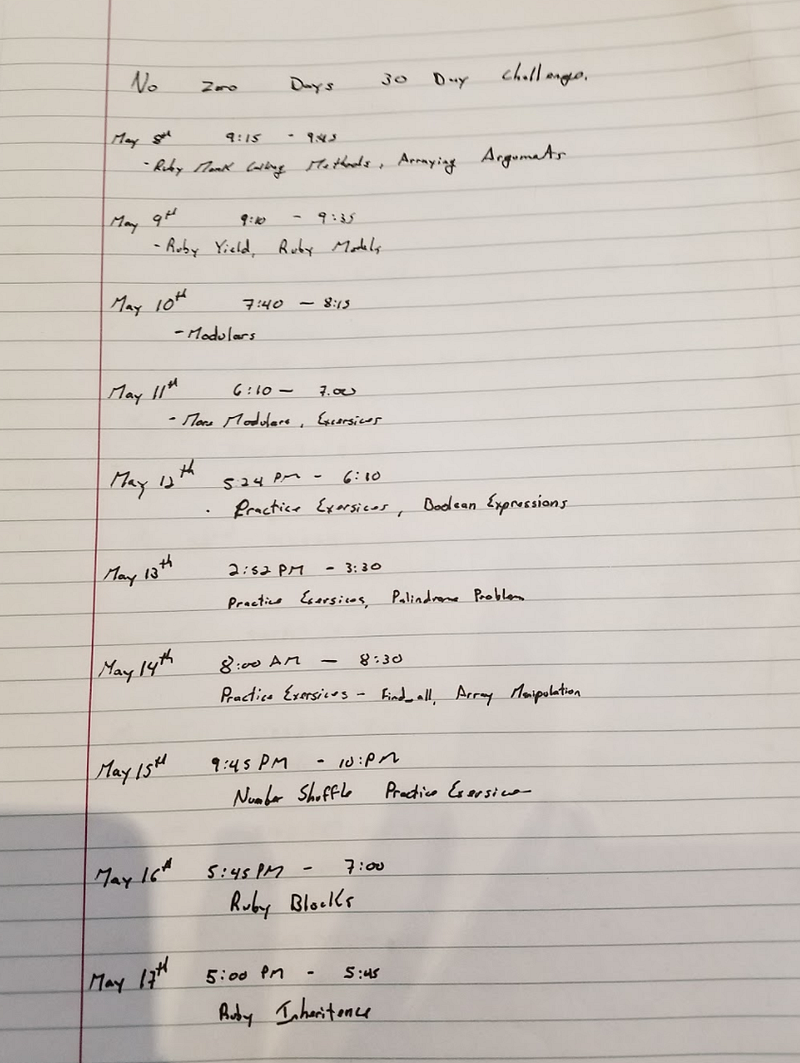 No Zero Days 30 Day Challenge.
May 8th 9:15 - 9:45
- Ruby Monk Calling Methods, Arraying Arguments
May 9th 9:10 - 9:35
- Ruby Yield, Ruby Models
May 10th 7:40 - 8:15
- Modulars
May 11th 6:10 - 7:00
- More Modulars, Excersices
May 12th 5:24 PM - 6:10
- Practice Exersices, Boolean Expressions
May 13th 2:52 PM - 3:30
Practice Exersices, Palindrome Problem
May 14th 8:00 AM - 8:30
Practice Exersices - Find_all, Array Manipulation
May 15th 9:45 PM - 10:PM
Number Shuffle Practice Exersice
May 16th 5:45 PM - 7:00
Ruby Blocks
May 17th 5:00 PM - 5:45
Ruby Inheritence